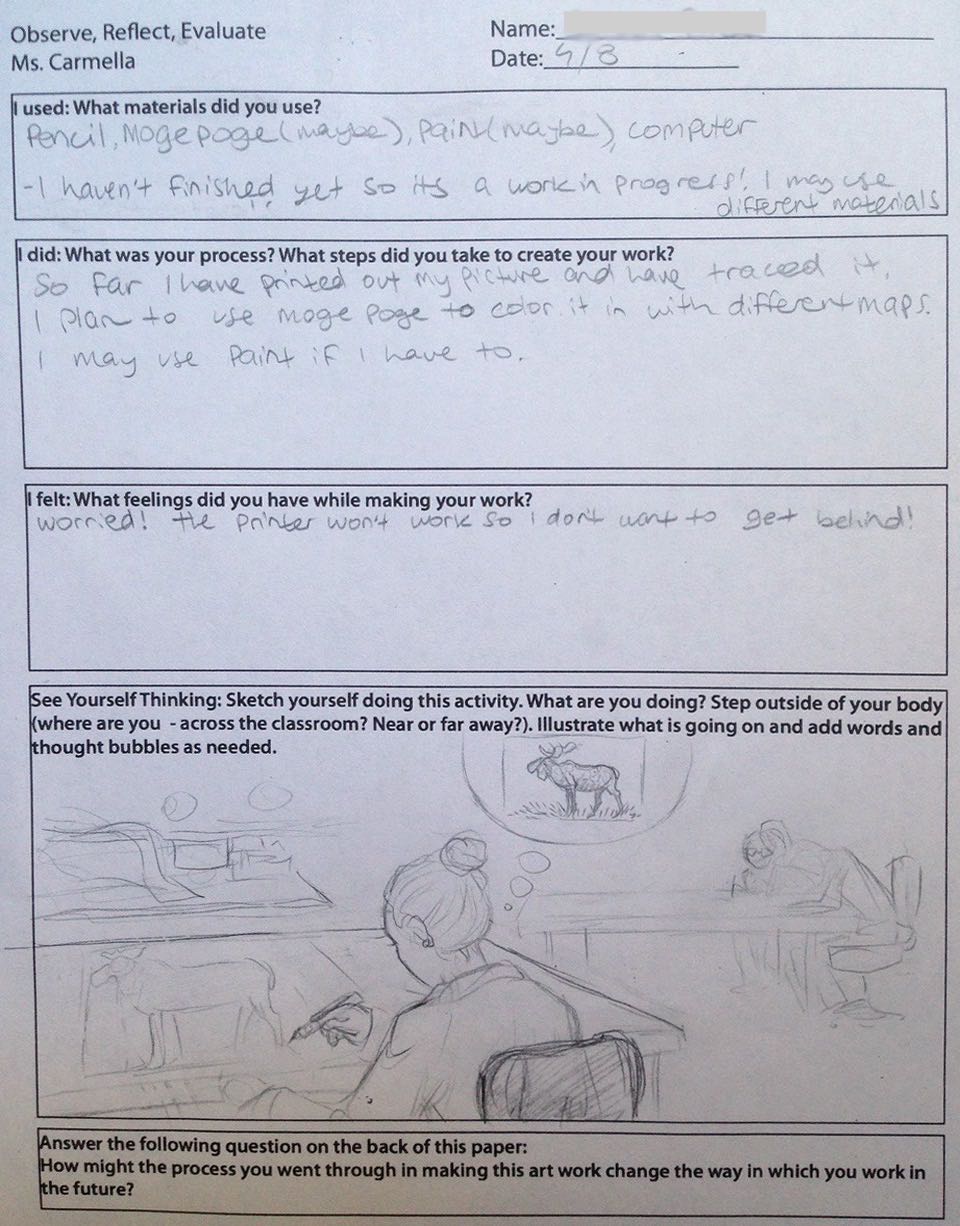 Observe, Reflect, Evaluate
Ms. Carmella
Name:
Date: 4/8
I used: What materials did you use?
Pencil, Moge poge (maybe), Paint (maybe), computer
-I haven't finished yet so its a work in progress! I may use
different materials
I did: What was your process? What steps did you take to create your work?
So far I have printed out my picture and have traced it.
I plan to use moge poge to color it in with different maps.
I may use Paint if I have to.
I felt: What feelings did you have while making your work?
worried! the printer won't work so i don't want to get behind!
See Yourself Thinking: Sketch yourself doing this activity. What are you doing? Step outside of your body
(where are you - across the classroom? Near or far away?). Illustrate what is going on and add words and
thought bubbles as needed.
Answer the following question on the back of this paper:
How might the process you went through in making this art work change the way in which you work in
the future?